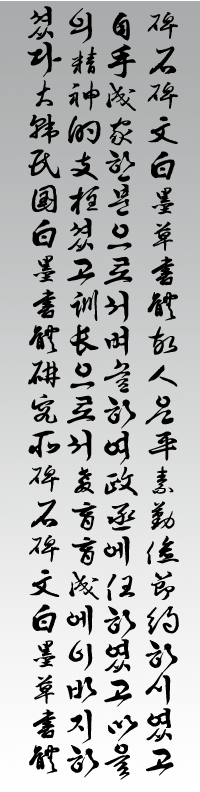 碑石碑文白墨草書體故人은平素勤儉節約하시였고
自手成家한분으로서벼슬하여政丞에任하였고마을
의精神的支柱였고訓長으로서敎育育成에이바지하
였다大韓民國白墨書體硏究所碑石碑文白墨草書體